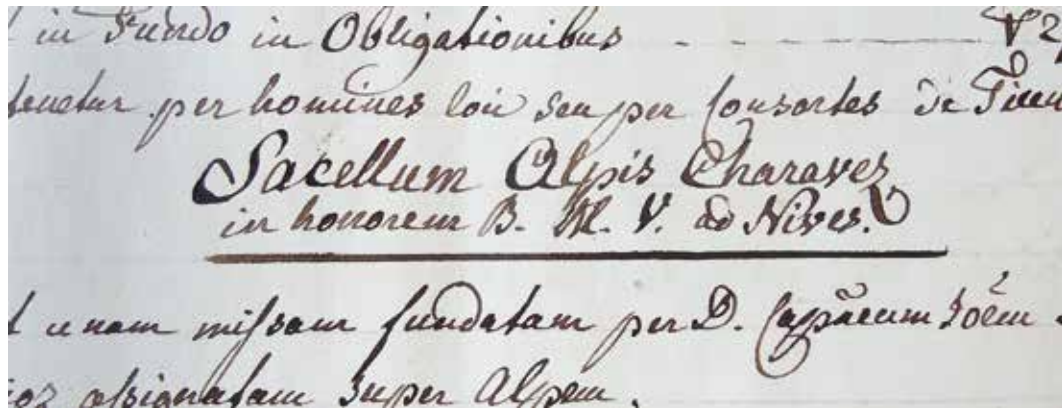 in Fundo in Obligationibus - - - V2
tenetur per homines loci seu per Consortes de
Sacellum Alpis Charaves
in honorem B. M. V. ad Nives.
unam missam fundatam per D.
assignatam super Alpem.